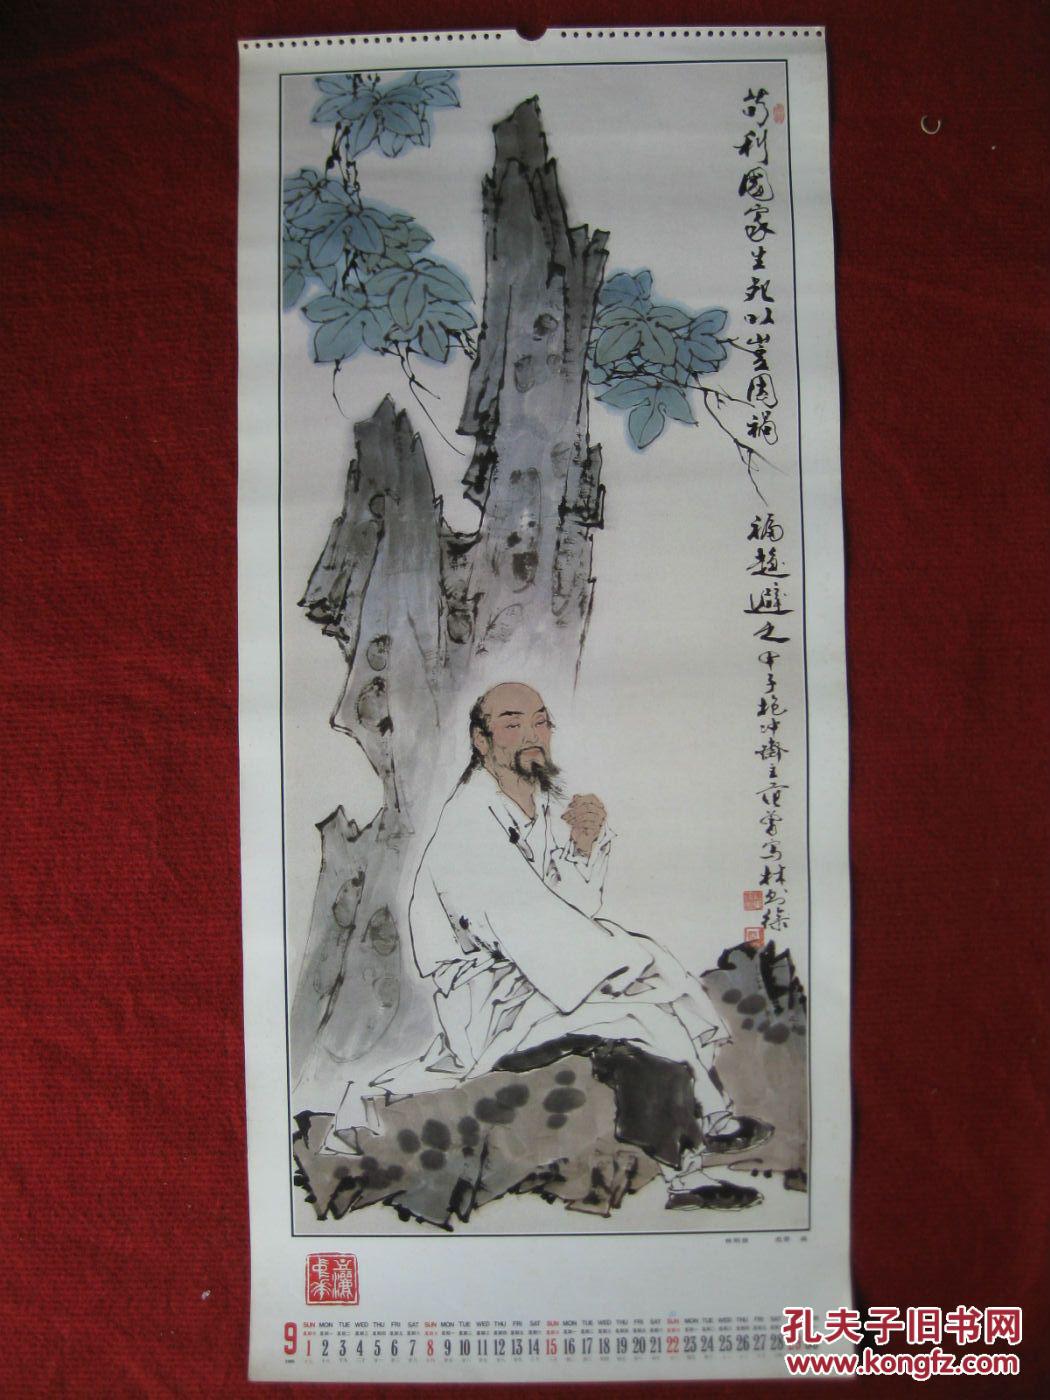 苟利國家生死以豈因禍
福趨避之甲子抱冲齋主范曾写林则徐
9
SUN MON TUE WED THU FRI SAT SUN MON TUE WED THU FRI SAT SUN MON TUE WED THU FRI SAT SUN MON TUE WED THU FRI
1 2 3 4 5 6 7 8 9 10 11 12 13 14 15 16 17 18 19 20 21 22 23 24 25 26 27 28 29 30
孔夫子旧书网
www.kongfz.com